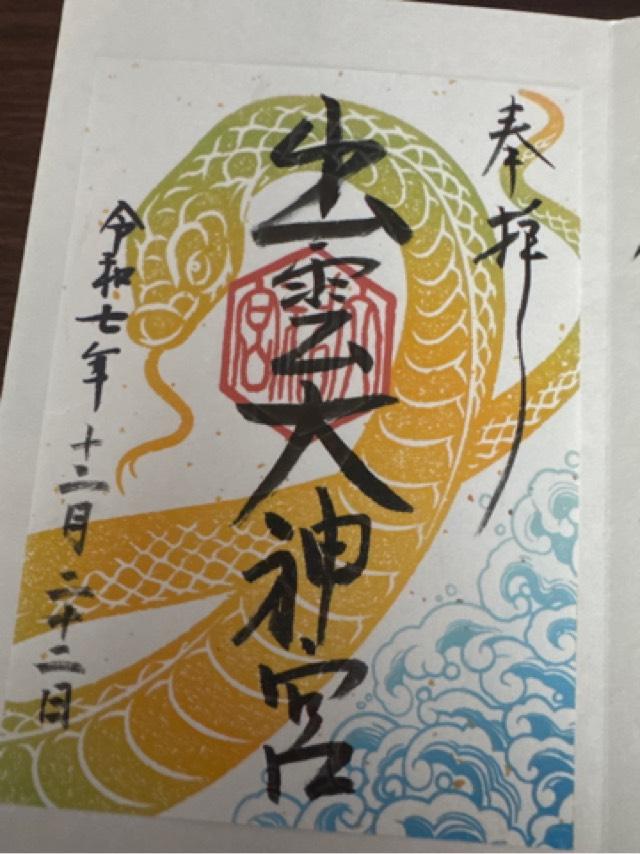 奉拝
出雲大神宮
令和七年十二月二十二日